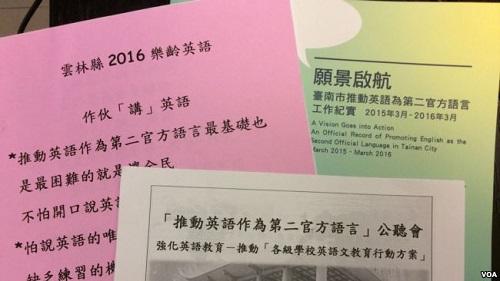 雲林縣 2016 樂齡英語
作伙「講」英語
*推動英語作為第二官方語言最基礎也
是最困難的就是讓全民
不怕開口說英語
*怕說英語的唯
缺乏練習的機
願景啟航
臺南市推動英語為第二官方語言
工作紀實 2015年3月-2016年3月
A Vision Goes into Action
An Official Record of Promoting English as the
Second Official Language in Tainan City
March 2015 - March 2016
「推動英語作為第二官方語言」公聽會
強化英語教育－推動「各級學校英語文教育行動方案」
VOA